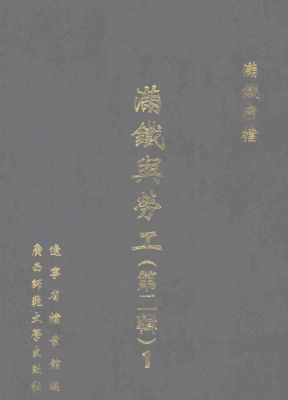 滿鐵密檔
滿鐵與勞工(第二輯)1
遼寧省檔案館編
廣西師範大學出版社